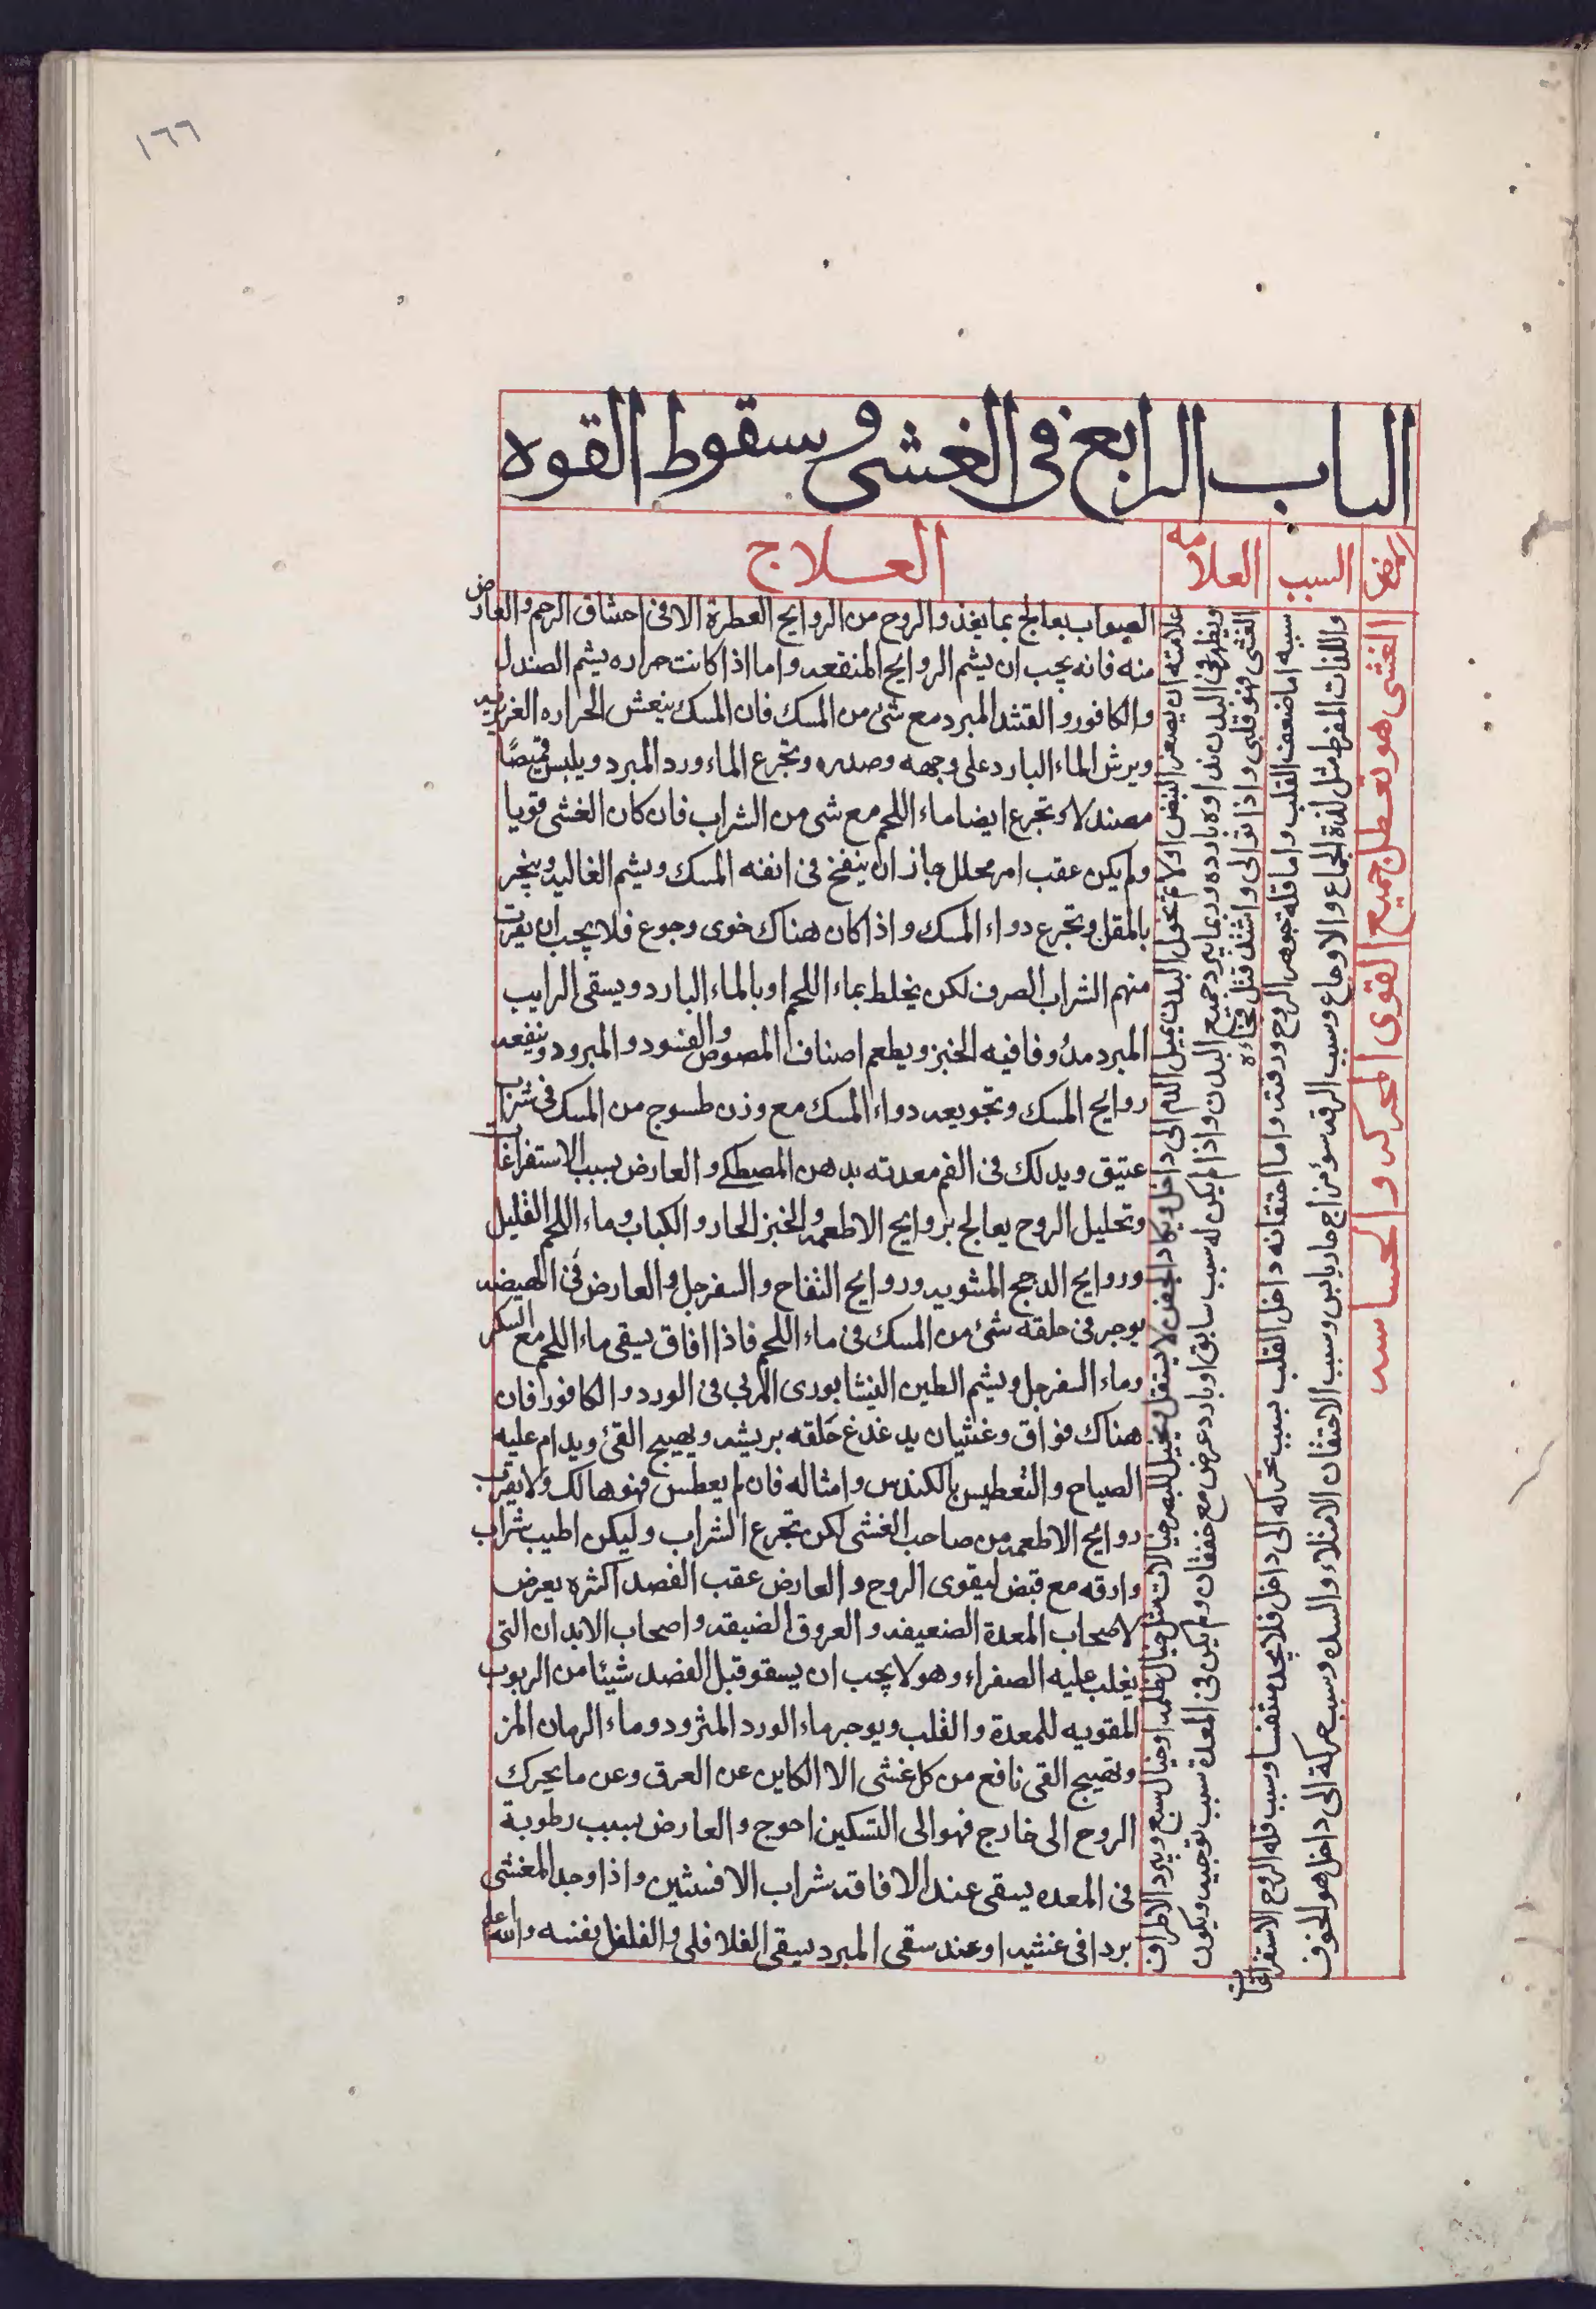 ١٦٦
الباب الرابع فى الغشى وسقوط القوه
المرض
السبب
العلامه
العـلاج
الغشى هو تعطل جميع القوى المحركه والحساسه
سببه اما ضعف القلب واما قلة جوهر الروح ورقته واما احتقانه داخل القلب بسبب تحركه الى داخل فلا يجد متنفسا وسبب قله الروح الاستفراغات
واللذات المفرط مثل لذة الجماع والاوجاع وسبب الرقه سؤ مزاج حار يابس وسبب الاحتقان الامتلاء والسده وسبب حركة الى داخل هو الخوف
علامته ان يصغر النبض اولا ثم تحول البدن يميل الدم الى داخل ويكاد الجفن لا يستقل ويخيل للبصر خيالات مثل خيال ظلمه او خيال سبع ويبرد الاطراف
ويظهر فى البدن نداوه بارده وربما يبرد جميع البدن واذا لم يكن له سبب سابق او بارد عرض مع خفقان ولم يكن فى المعدة سبب توجيه ويكون
الغشى فهو قلبى واذا توالى واشتد قتل فجاءة
الصواب يعالج بما يغذو الروح من الروايح العطرة الا فى احتناق الرحم والعارض
منه فانه يجب ان يشم الروايح المنقعه واما اذا كانت حراره يشم الصندل
والكافور والقثد المبرد مع شئ من المسك فان المسك ينعش الحراره الغريزيه
ويرش الماء البارد على وجهه وصدره وتجرع الماء ورد المبرد ويلبس قميصًا
مصندلا وتجرع ايضا ماء اللحم مع شى من الشراب فان كان الغشى قويا
ولم يكن عقب امر محلل جاز ان ينفخ فى انفه المسك ويشم الغاليه ويبخر
بالمقل وتجرع دواء المسك واذا كان هناك خوى وجوع فلا يجب ان يقرب
منهم الشراب الصرف لكن يخلط بماء اللحم او بالماء البارد ويسقى الرايب
المبرد مدوفا فيه الخبز ويطعم اصناف المصوص والقنود والمبرود وينفعه
روايح المسك وتجويعه دواء المسك مع وزن طسوج من المسك فى شراب
عتيق ويدلك فى الفم معدته بدهن المصطكى والعارض بسبب الاستفراغات
وتحليل الروح يعالج بروايح الاطعمه والخبز الحار والكباب وماء اللحم القليل
وروايح الدجج المشويه وروايح التفاح والسفرجل والعارض فى الهيضه
يوجر فى حلقه شئ من المسك فى ماء اللحم فاذا افاق يسقى ماء اللحم مع السكر
وماء السفرجل ويشم الطين النيشابورى المربى فى الورد والكافور فان
هناك فواق وغثيان يدغدغ حلقه بريشه ويهيج القئ ويدام عليه
الصياح والتعطيس بالكندس وامثاله فان لم يعطس فهو هالك ولا يقرب
روايح الاطعمه من صاحب الغشى لكن تجرع الشراب وليكن اطيب شراب
وارقه مع قبض ليقوى الروح والعارض عقب الفصد اكثره يعرض
لاصحاب المعدة الضعيفه والعروق الضيقه واصحاب الابدان التى
يغلب عليه الصفراء وهولا يجب ان يسقو قبل الفصد شيئا من الربوب
المقويه للمعدة والقلب ويوجر ماء الورد المثرود وماء الرمان المز
وتهيج القى نافع من كل غشى الا الكاين عن العرق وعن ما يحرك
الروح الى خارج فهو الى التسكين احوج والعارض بسبب رطوبة
فى المعده يسقى عند الافاقه شراب الافسنثين واذا وجد المغشى
بردا فى غشيه او عند سقى المبرد سقى الفلافلى والفلفل نفسه والله اعلم